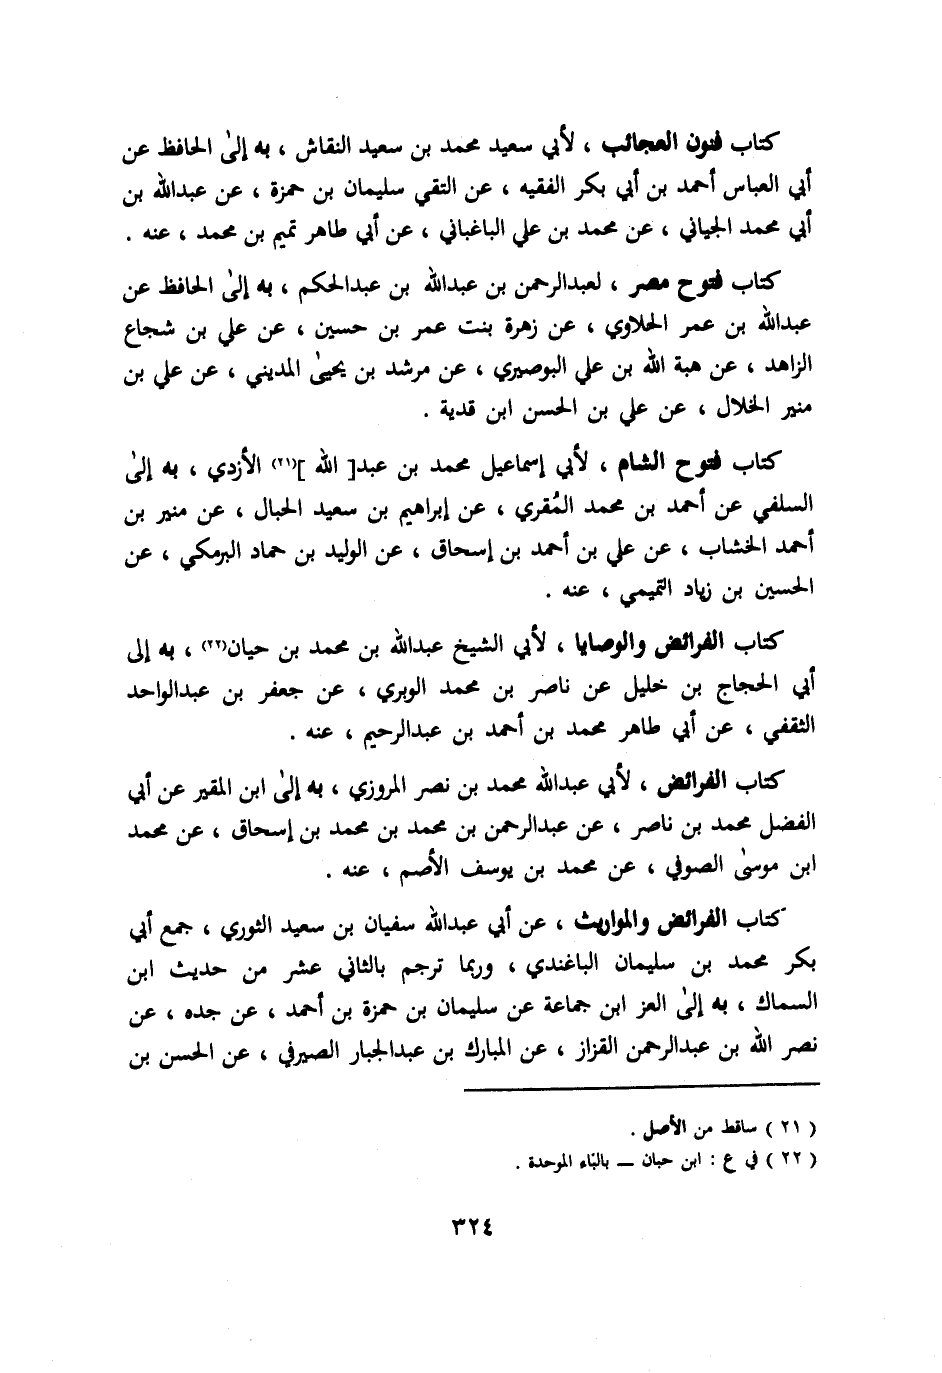 كتاب فنون العجائب ، لأبي سعيد محمد بن سعيد النقاش ، به إلىٰ الحافظ عن
أبي العباس أحمد بن أبي بكر الفقيه ، عن التقي سليمان بن حمزة ، عن عبدالله بن
أبي محمد الجياني ، عن محمد بن علي الباغباني ، عن أبي طاهر تميم بن محمد ، عنه .
كتاب فتوح مصر ، لعبدالرحمن بن عبدالله بن عبدالحكم ، به إلىٰ الحافظ عن
عبدالله بن عمر الحلاوي ، عن زهرة بنت عمر بن حسين ، عن علي بن شجاع
الزاهد ، عن هبة الله بن علي البوصيري ، عن مرشد بن يحيىٰ المديني ، عن علي بن
منير الخلال ، عن علي بن الحسن ابن قدية .
كتاب فتوح الشام ، لأبي إسماعيل محمد بن عبد[ الله ](٢١) الأزدي ، به إلىٰ
السلفي عن أحمد بن محمد المُقري ، عن إبراهيم بن سعيد الحبال ، عن منير بن
أحمد الخشاب ، عن علي بن أحمد بن إسحاق ، عن الوليد بن حماد البرمكي ، عن
الحسين بن زياد التميمي ، عنه .
كتاب الفرائض والوصايا ، لأبي الشيخ عبدالله بن محمد بن حيان(٢٢) ، به إلى
أبي الحجاج بن خليل عن ناصر بن محمد الوبري ، عن جعفر بن عبدالواحد
الثقفي ، عن أبي طاهر محمد بن أحمد بن عبدالرحيم ، عنه .
كتاب الفرائض ، لأبي عبدالله محمد بن نصر المروزي ، به إلىٰ ابن المقير عن أبي
الفضل محمد بن ناصر ، عن عبدالرحمن بن محمد بن محمد بن إسحاق ، عن محمد
ابن موسىٰ الصوفي ، عن محمد بن يوسف الأصم ، عنه .
كتاب الفرائض والمواريث ، عن أبي عبدالله سفيان بن سعيد الثوري ، جمع أبي
بكر محمد بن سليمان الباغندي ، وربما ترجم بالثاني عشر من حديث ابن
السماك ، به إلىٰ العز ابن جماعة عن سليمان بن حمزة بن أحمد ، عن جده ، عن
نصر الله بن عبدالرحمن القزاز ، عن المبارك بن عبدالجبار الصيرفي ، عن الحسن بن
( ٢١ ) ساقط من الأصل .
( ٢٢ ) في ع : ابن حبان — بالبّاء الموحدة .
٣٢٤